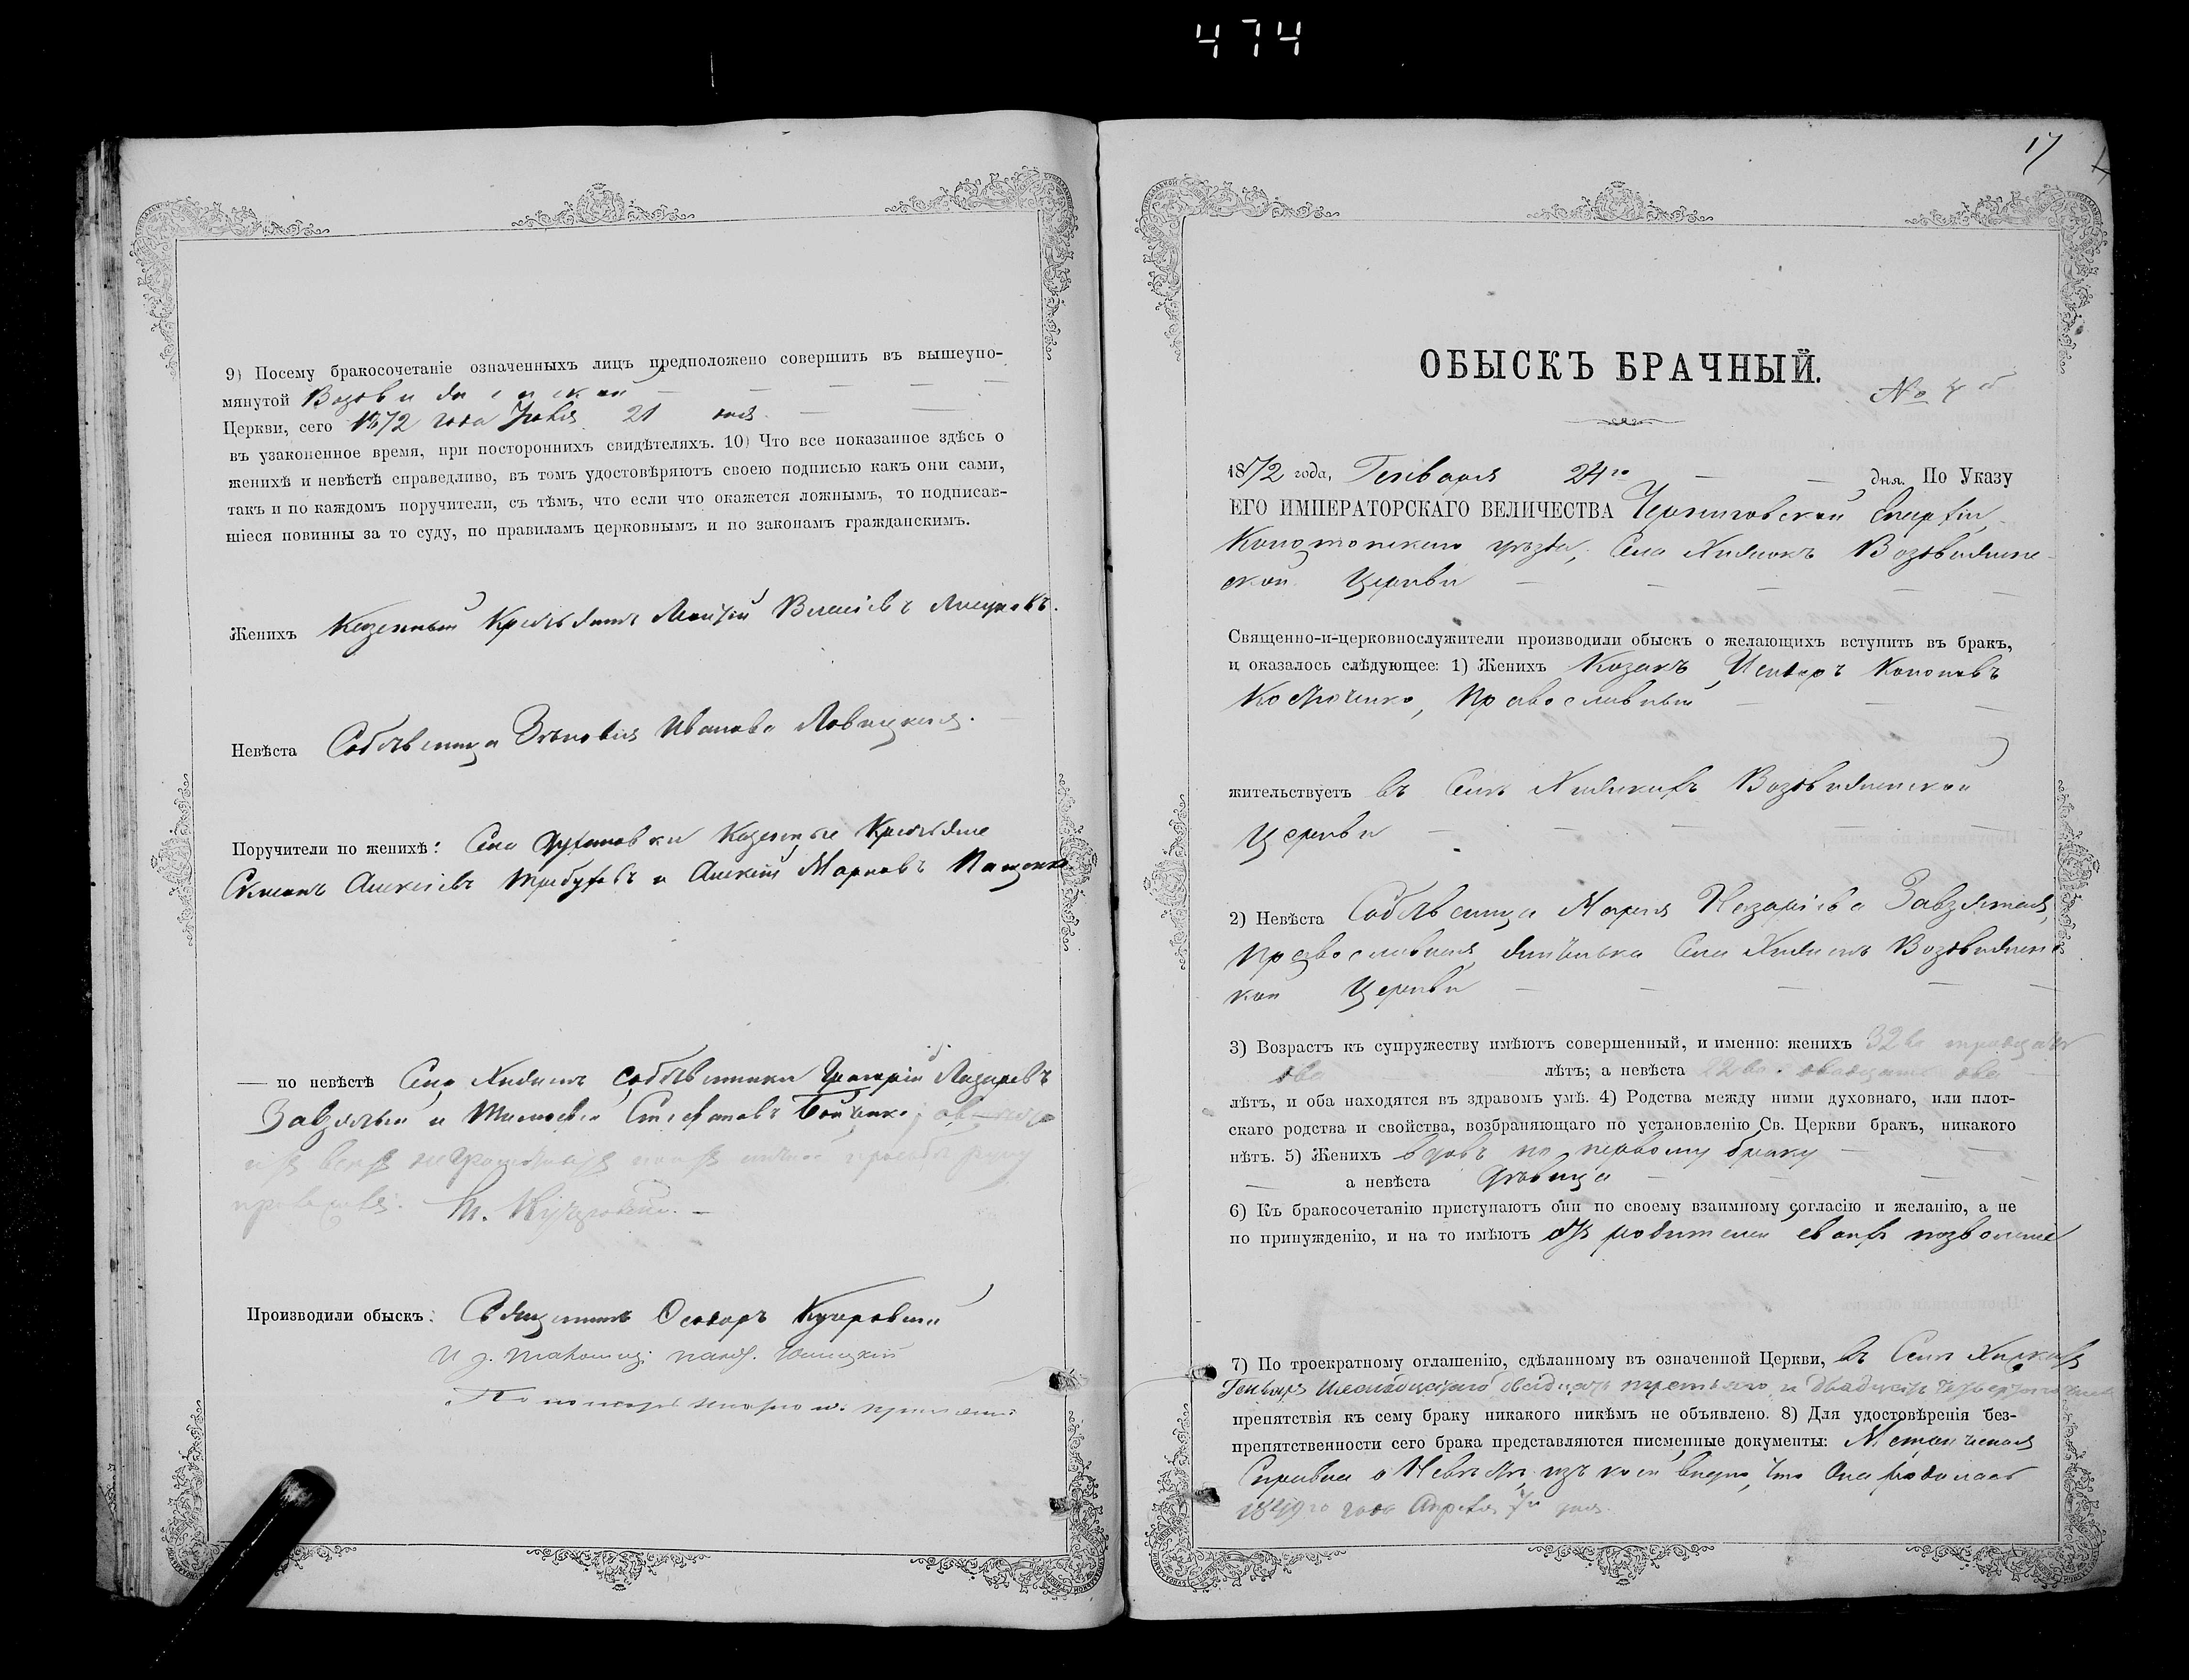 474
9) Посему бракосочетаніе означенныхъ лицъ предположено совершить въ вышеупо-
мянутой Воздвиженской
Церкви, сего 1872 года 21 дня
въ узаконенное время, при постороннихъ свидѣтеляхъ. 10) Что все показанное здѣсь о
женихѣ и невѣстѣ справедливо, въ томъ удостовѣряютъ своею подписью какъ они сами,
такъ и по каждомъ поручители, съ тѣмъ, что если что окажется ложнымъ, то подписав-
шіеся повинны за то суду, по правиламъ церковнымъ и по законамъ гражданскимъ.
Женихъ Казенный Крестьянинъ
Невѣста Собственница Зѣновія Иванова
Поручители по женихѣ: Села Казенные Крестьяне
Алексѣевъ и Алексѣй Марковъ
— по невѣстѣ Села собственники Григорій Лазаревъ
Завзятый и Тимофей Стефановъ Бойченко
Производили обыскъ: Священникъ Ѳеодоръ Кучеровскій
17
ОБЫСКЪ БРАЧНЫЙ.
№
1872 года, Генваря 24го дня. По Указу
ЕГО ИМПЕРАТОРСКАГО ВЕЛИЧЕСТВА Черниговской Епархіи
Конотопскаго уѣзда, Села Хижокъ Воздвижен
ской Церкви
Священно-и-церковнослужители производили обыскъ о желающихъ вступить въ бракъ,
и оказалось слѣдующее: 1) Женихъ Козакъ Исидоръ Кононовъ
Костюченко, Православный
жительствуетъ въ Селѣ Хижкахъ Воздвиженской
Церкви
2) Невѣста Собственница Марія Назаріева Завзятая,
Православная, жителька Села Хижокъ Воздвиженс
кой Церкви
3) Возрастъ къ супружеству имѣютъ совершенный, и именно: женихъ 32ва тридцать
два лѣтъ; а невѣста 22ва двадцать два
лѣтъ, и оба находятся въ здравомъ умѣ. 4) Родства между ними духовнаго, или плот-
скаго родства и свойства, возбраняющаго по установленію Св. Церкви бракъ, никакого
нѣтъ. 5) Женихъ вдовъ по первому браку
а невѣста дѣвица
6) Къ бракосочетанію приступаютъ они по своему взаимному согласію и желанію, а не
по принужденію, и на то имѣютъ отъ родителей своихъ позволеніе
7) По троекратному оглашенію, сдѣланному въ означенной Церкви, въ Селѣ Хижкахъ
Генваря двадцать третьяго и двадцать четвертаго
препятствія къ сему браку никакого никѣмъ не объявлено. 8) Для удостовѣренія без-
препятственности сего брака представляются писменные документы: Метрическая
Справка о Невѣстѣ, изъ коей видно, что Она родилась
1849го года Апрѣля дня.